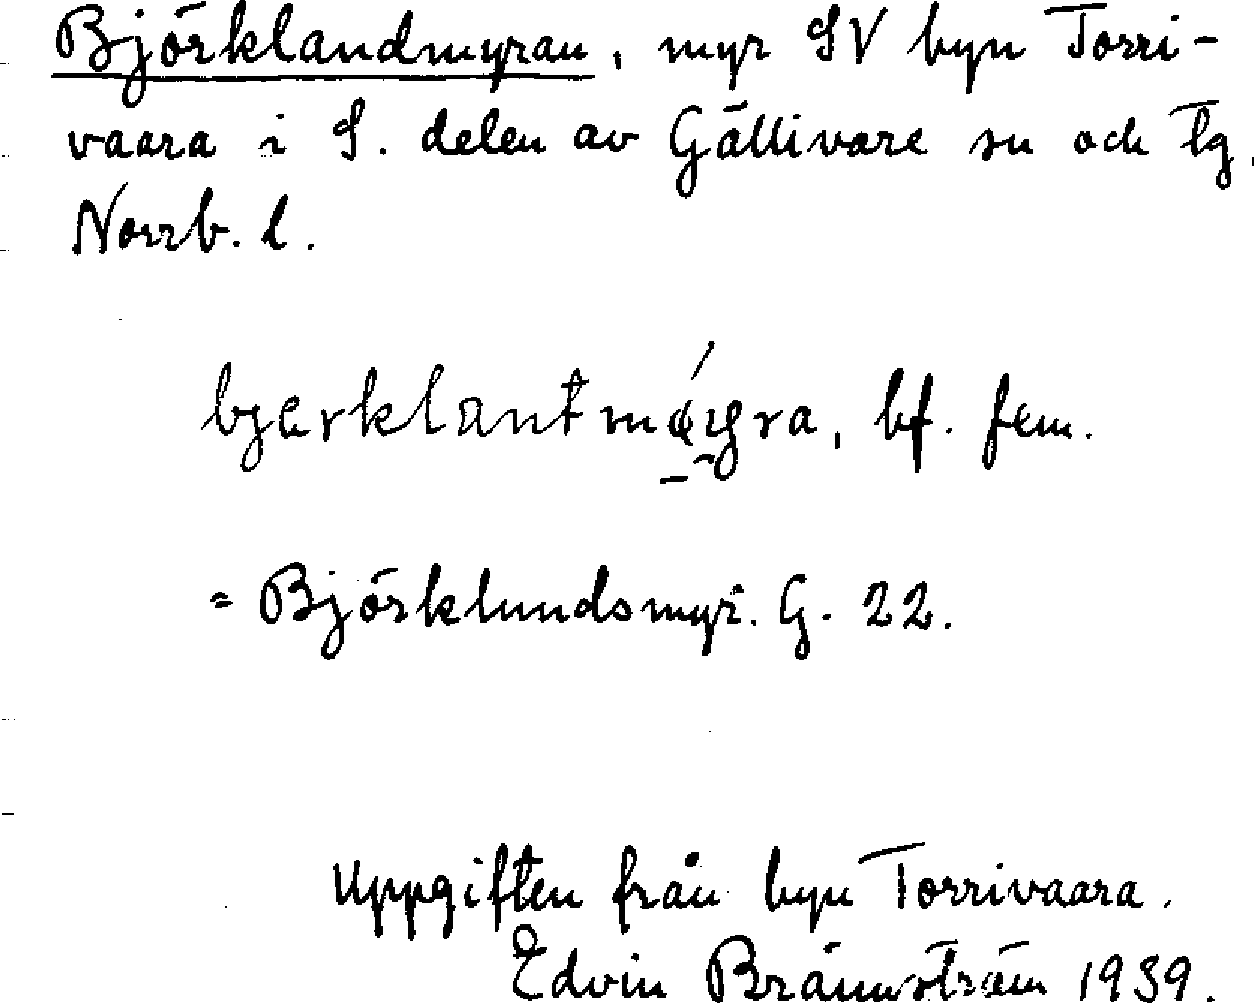 Björklandmyran, myr SV byn Torri-
vaara i S. delen av Gällivare sn och tg,
Norrb. l.
bjerklant, bf. fem.
= Björklundsmyr. G. 22.
Uppgiften från byn Torrivaara.
Edvin Brännström 1939.